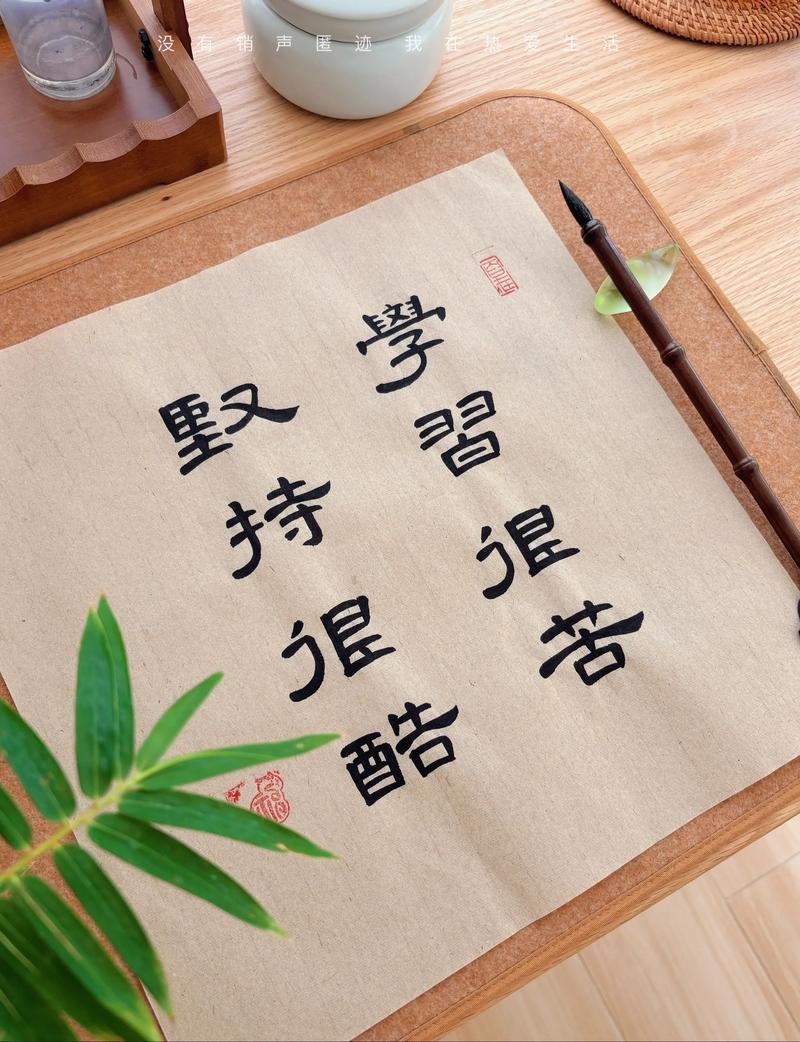 没有销声匿迹 我在热爱生活
學習很苦
堅持很酷
福